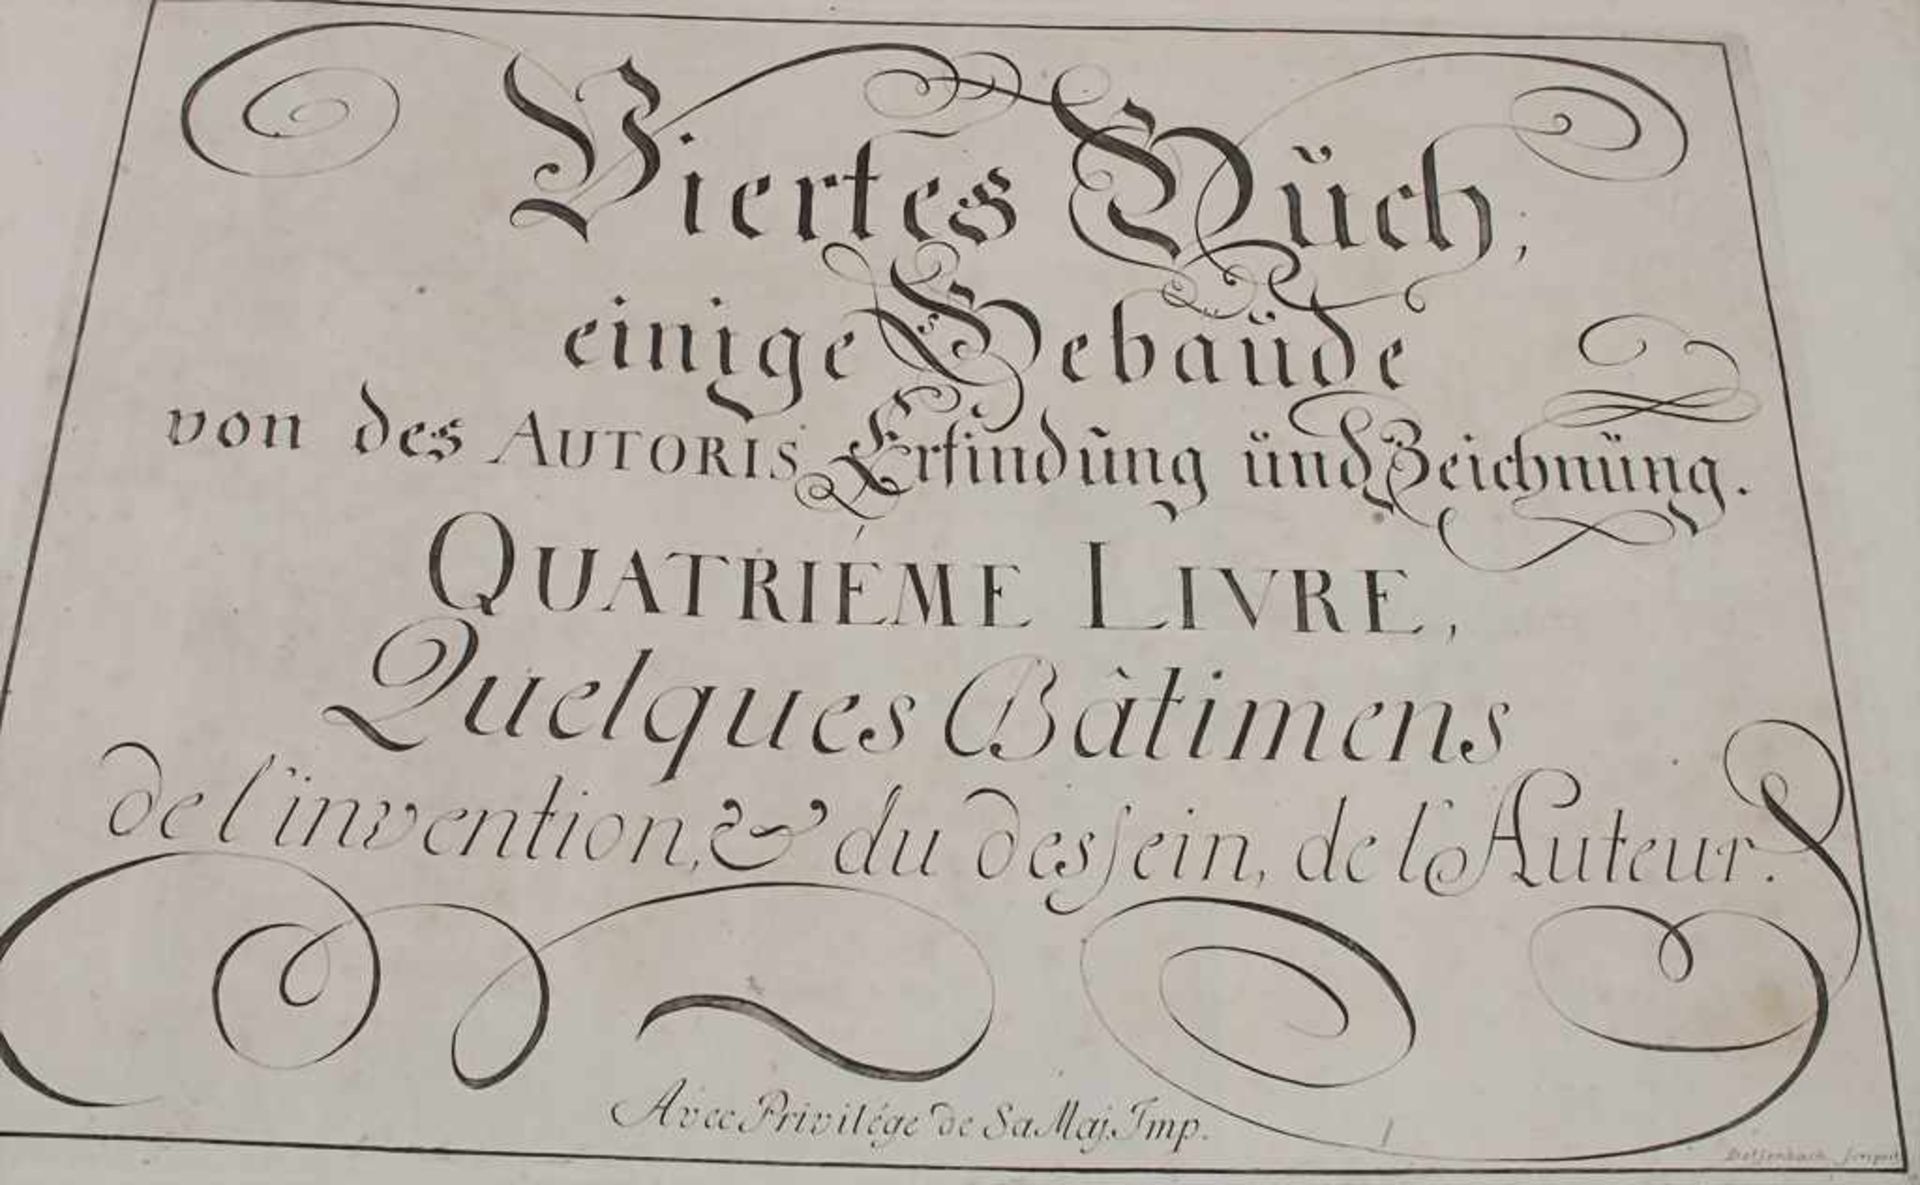 Viertes Büch,
einige Gebaüde
von des AUTORIS Erfindüng ünd Zeichnüng.
QUATRIÉME LIVRE,
Quelques Bàtimens
de l'invention, & du desſein, de l'Auteur.
Avec Privilége de Sa Maj. Imp.